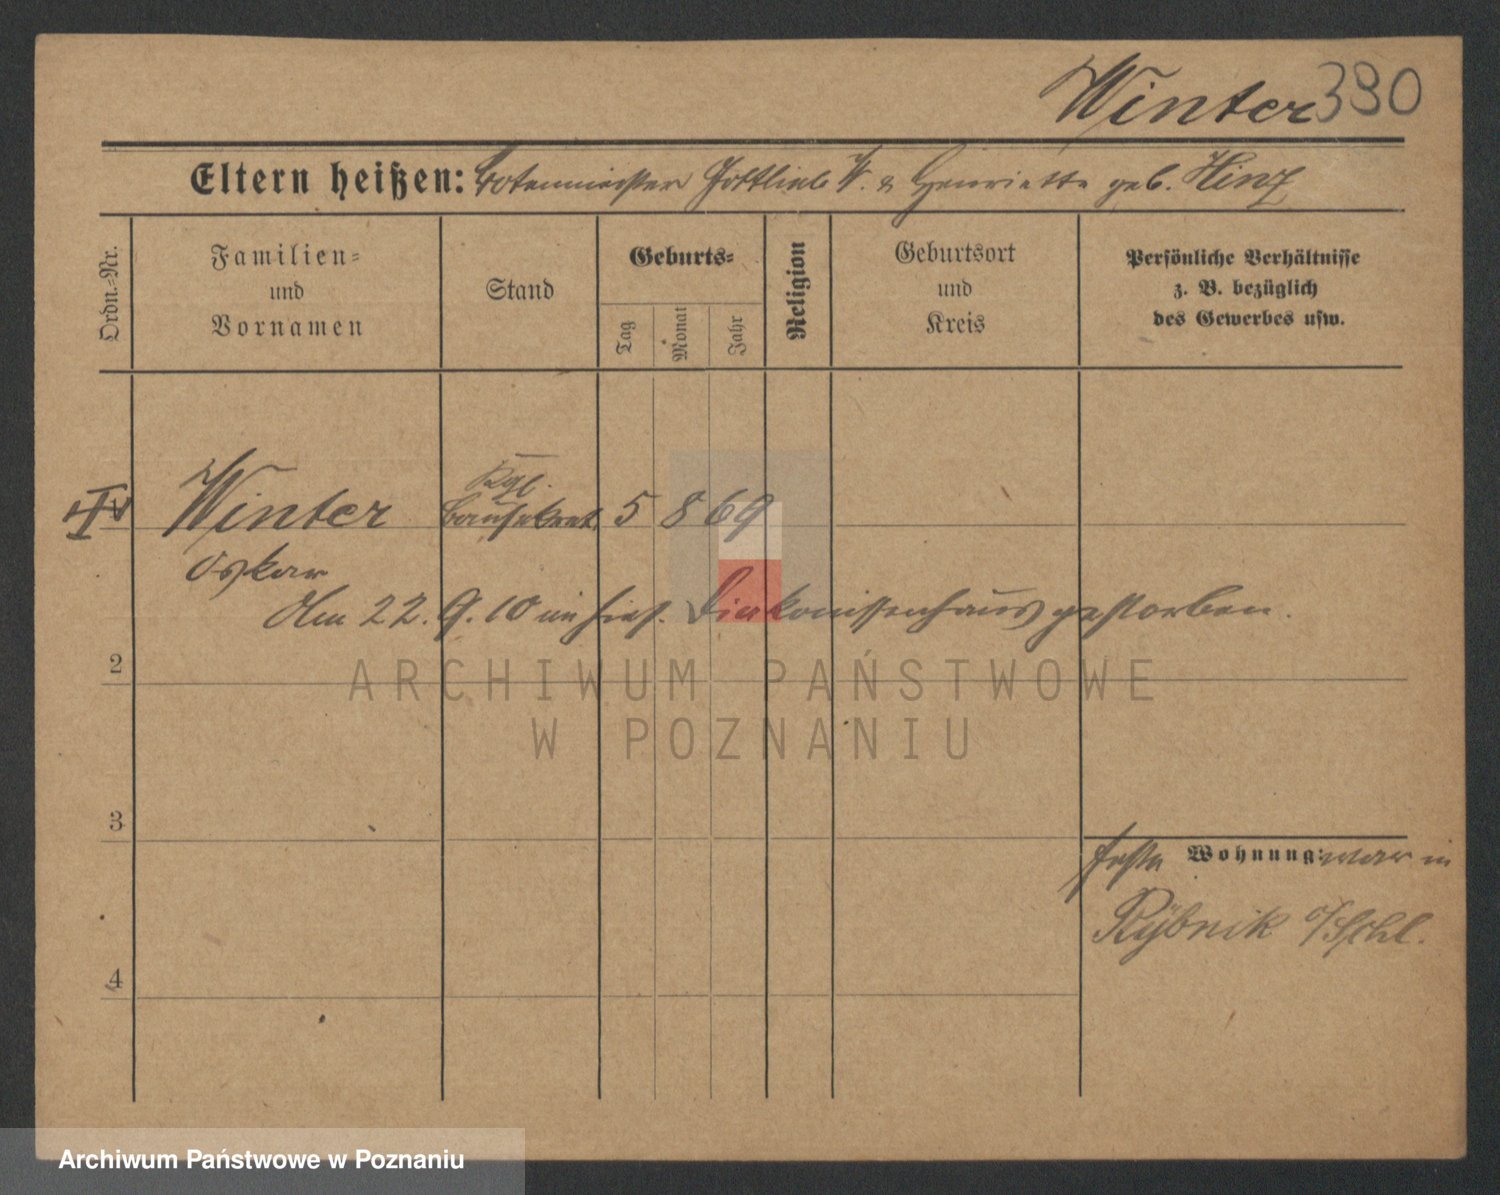 Winter 390
Eltern heißen: Botenmeister Gottlieb W. & Henriette geb. Hinz
Ordn.-Nr.
Familien-
und
Vornamen
Stand
Geburts-
Tag
Monat
Jahr
Religion
Geburtsort
und
Kreis
Persönliche Verhältnisse
z. B. bezüglich
des Gewerbes usw.
Kgl.
Winter Bausekret. 5 8 69
Oskar
Am 22. 9. 10 im hies. Diakonissenhaus gestorben.
2
ARCHIWUM PAŃSTWOWE
W POZNANIU
3
feste Wohnung: war in
Rybnik O/Schl.
4
Archiwum Państwowe w Poznaniu